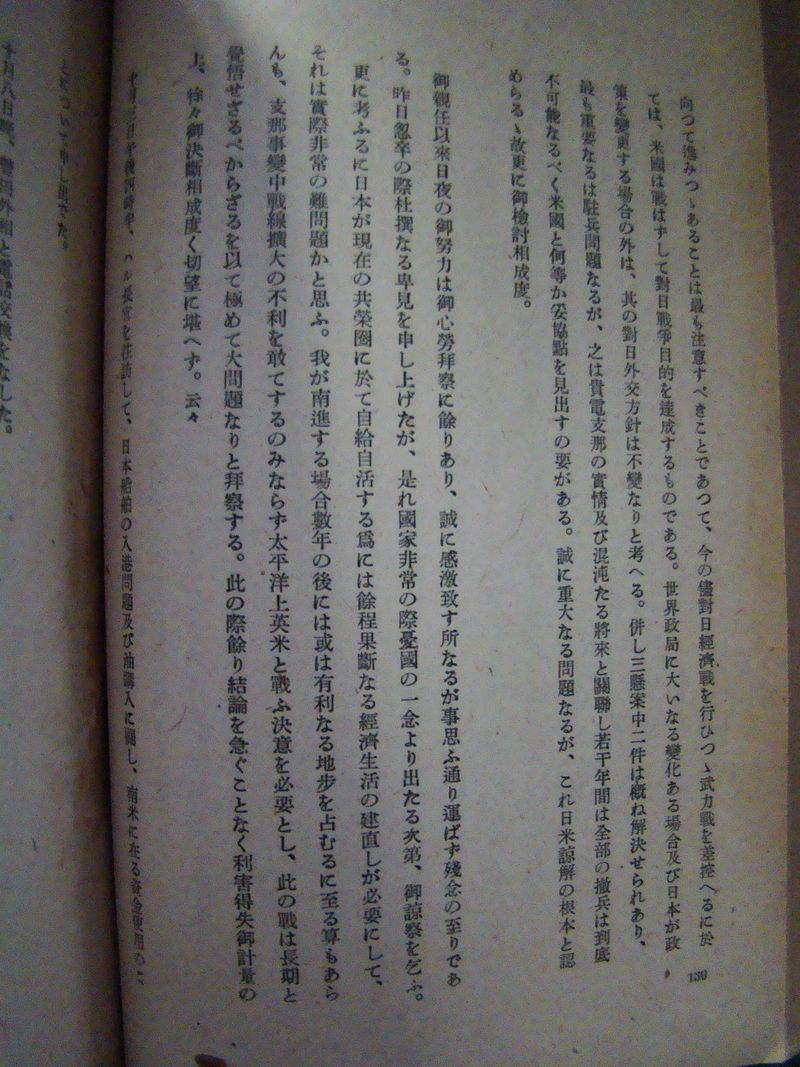 向つて進みつゝあることは最も注意すべきことであつて、今の儘對日經濟戰を行ひつゝ武力戰を差控へるに於
ては、米國は戰はずして對日戰爭目的を達成するものである。世界政局に大いなる變化ある場合及び日本が政
策を變更する場合の外は、其の對日外交方針は不變なりと考へる。併し三懸案中二件は概ね解決せられあり、
最も重要なるは駐兵問題なるが、之は貴電支那の實情及び混沌たる將來と關聯し若干年間は全部の撤兵は到底
不可能なるべく米國と何等か妥協點を見出すの要がある。誠に重大なる問題なるが、これ日米諒解の根本と認
めらるゝ故更に御檢討相成度。
御親任以來日夜の御努力は御心勞拜察に餘りあり、誠に感激致す所なるが事思ふ通り運ばず殘念の至りであ
る。昨日忽卒の際杜撰なる卑見を申し上げたが、是れ國家非常の際憂國の一念より出たる次第、御諒察を乞ふ。
更に考ふるに日本が現在の共榮圈に於て自給自活する爲には餘程果斷なる經濟生活の建直しが必要にして、
それは實際非常の難問題かと思ふ。我が南進する場合數年の後には或は有利なる地步を占むるに至る算もあら
んも、支那事變中戰線擴大の不利を敢てするのみならず太平洋上英米と戰ふ決意を必要とし、此の戰は長期と
覺悟せざるべからざるを以て極めて大問題なりと拜察する。此の際餘り結論を急ぐことなく利害得失御計量の
上、徐々御決斷相成度く切望に堪へず。云々
日午後四時半、ハル長官を往訪して、日本船舶の入港問題及び油購入に關し、南米に在る資金使用の
とについて申し出でた。
十月八日朝、豐田外相と電話交換をなした。
130